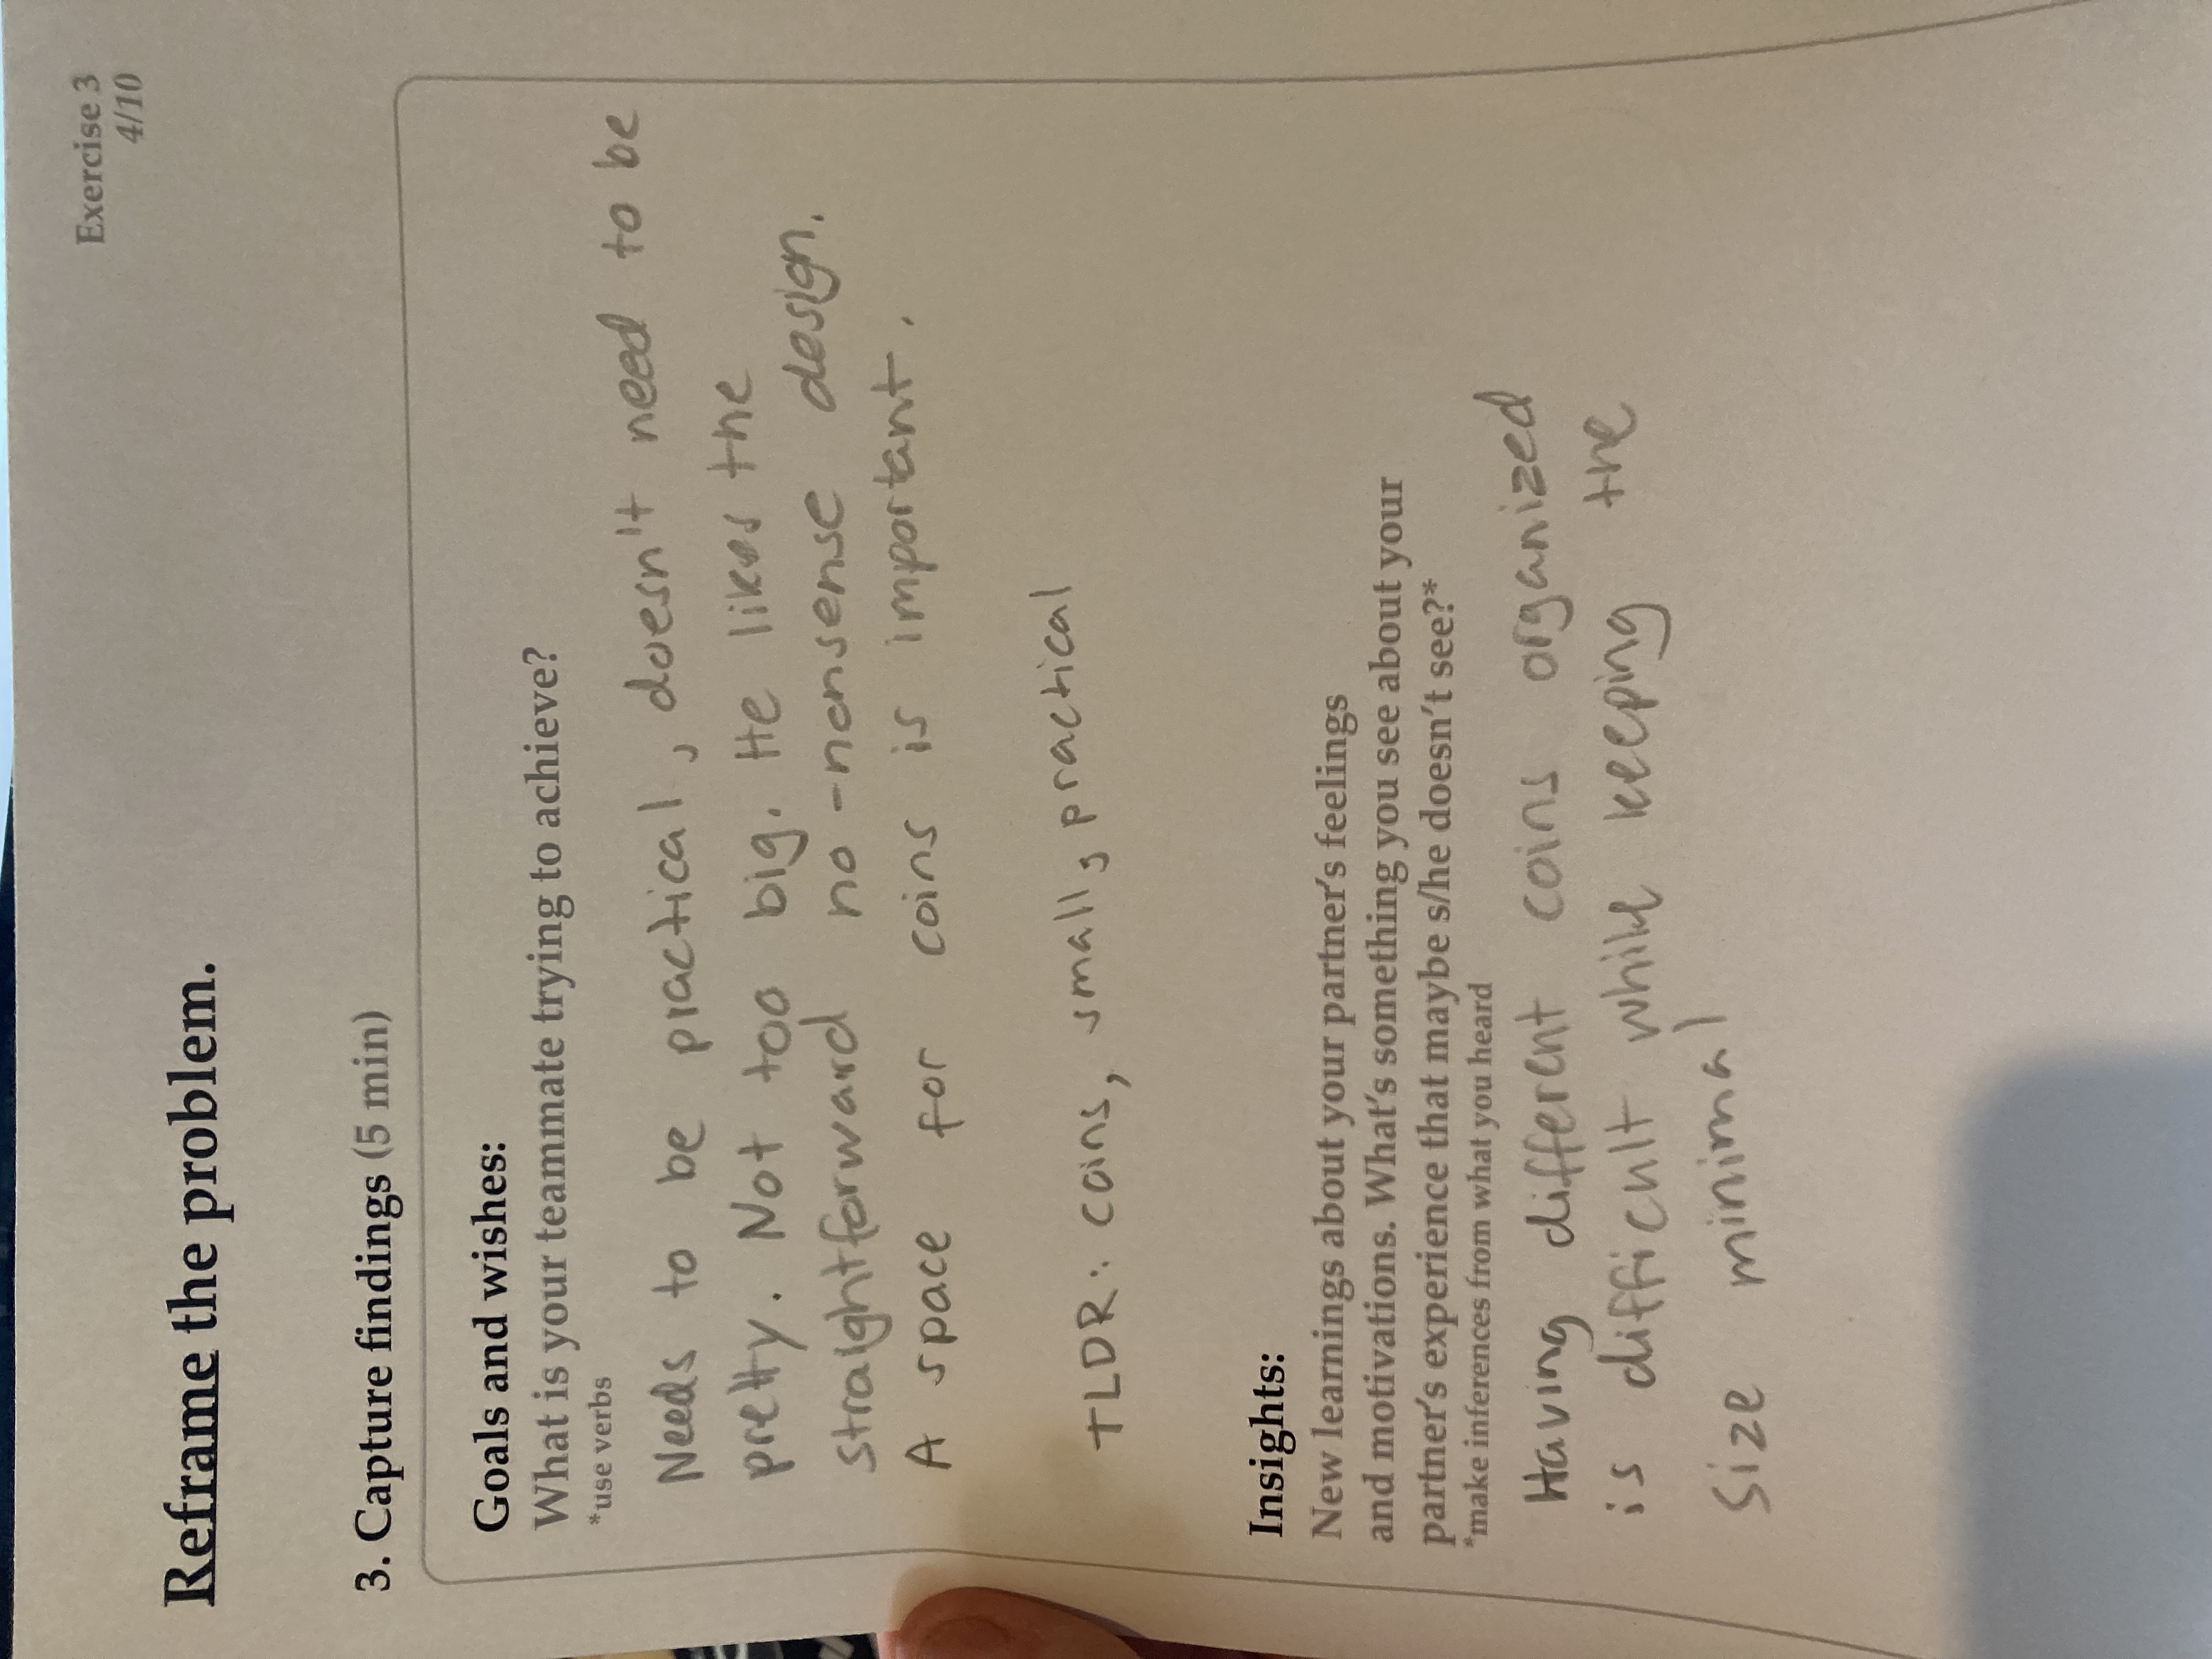 Exercise 3
4/10
Reframe the problem.
3. Capture findings (5 min)
Goals and wishes:
What is your teammate trying to achieve?
*use verbs
Needs to be practical, doesn't need to be
pretty. Not too big. He likes the
straightforward no-nonsense design.
A space for coins is important.
TLDR: coins, small, practical
Insights:
New learnings about your partner's feelings
and motivations. What's something you see about your
partner's experience that maybe s/he doesn't see?*
*make inferences from what you heard
Having different coins organized
is difficult while keeping the
size minimal